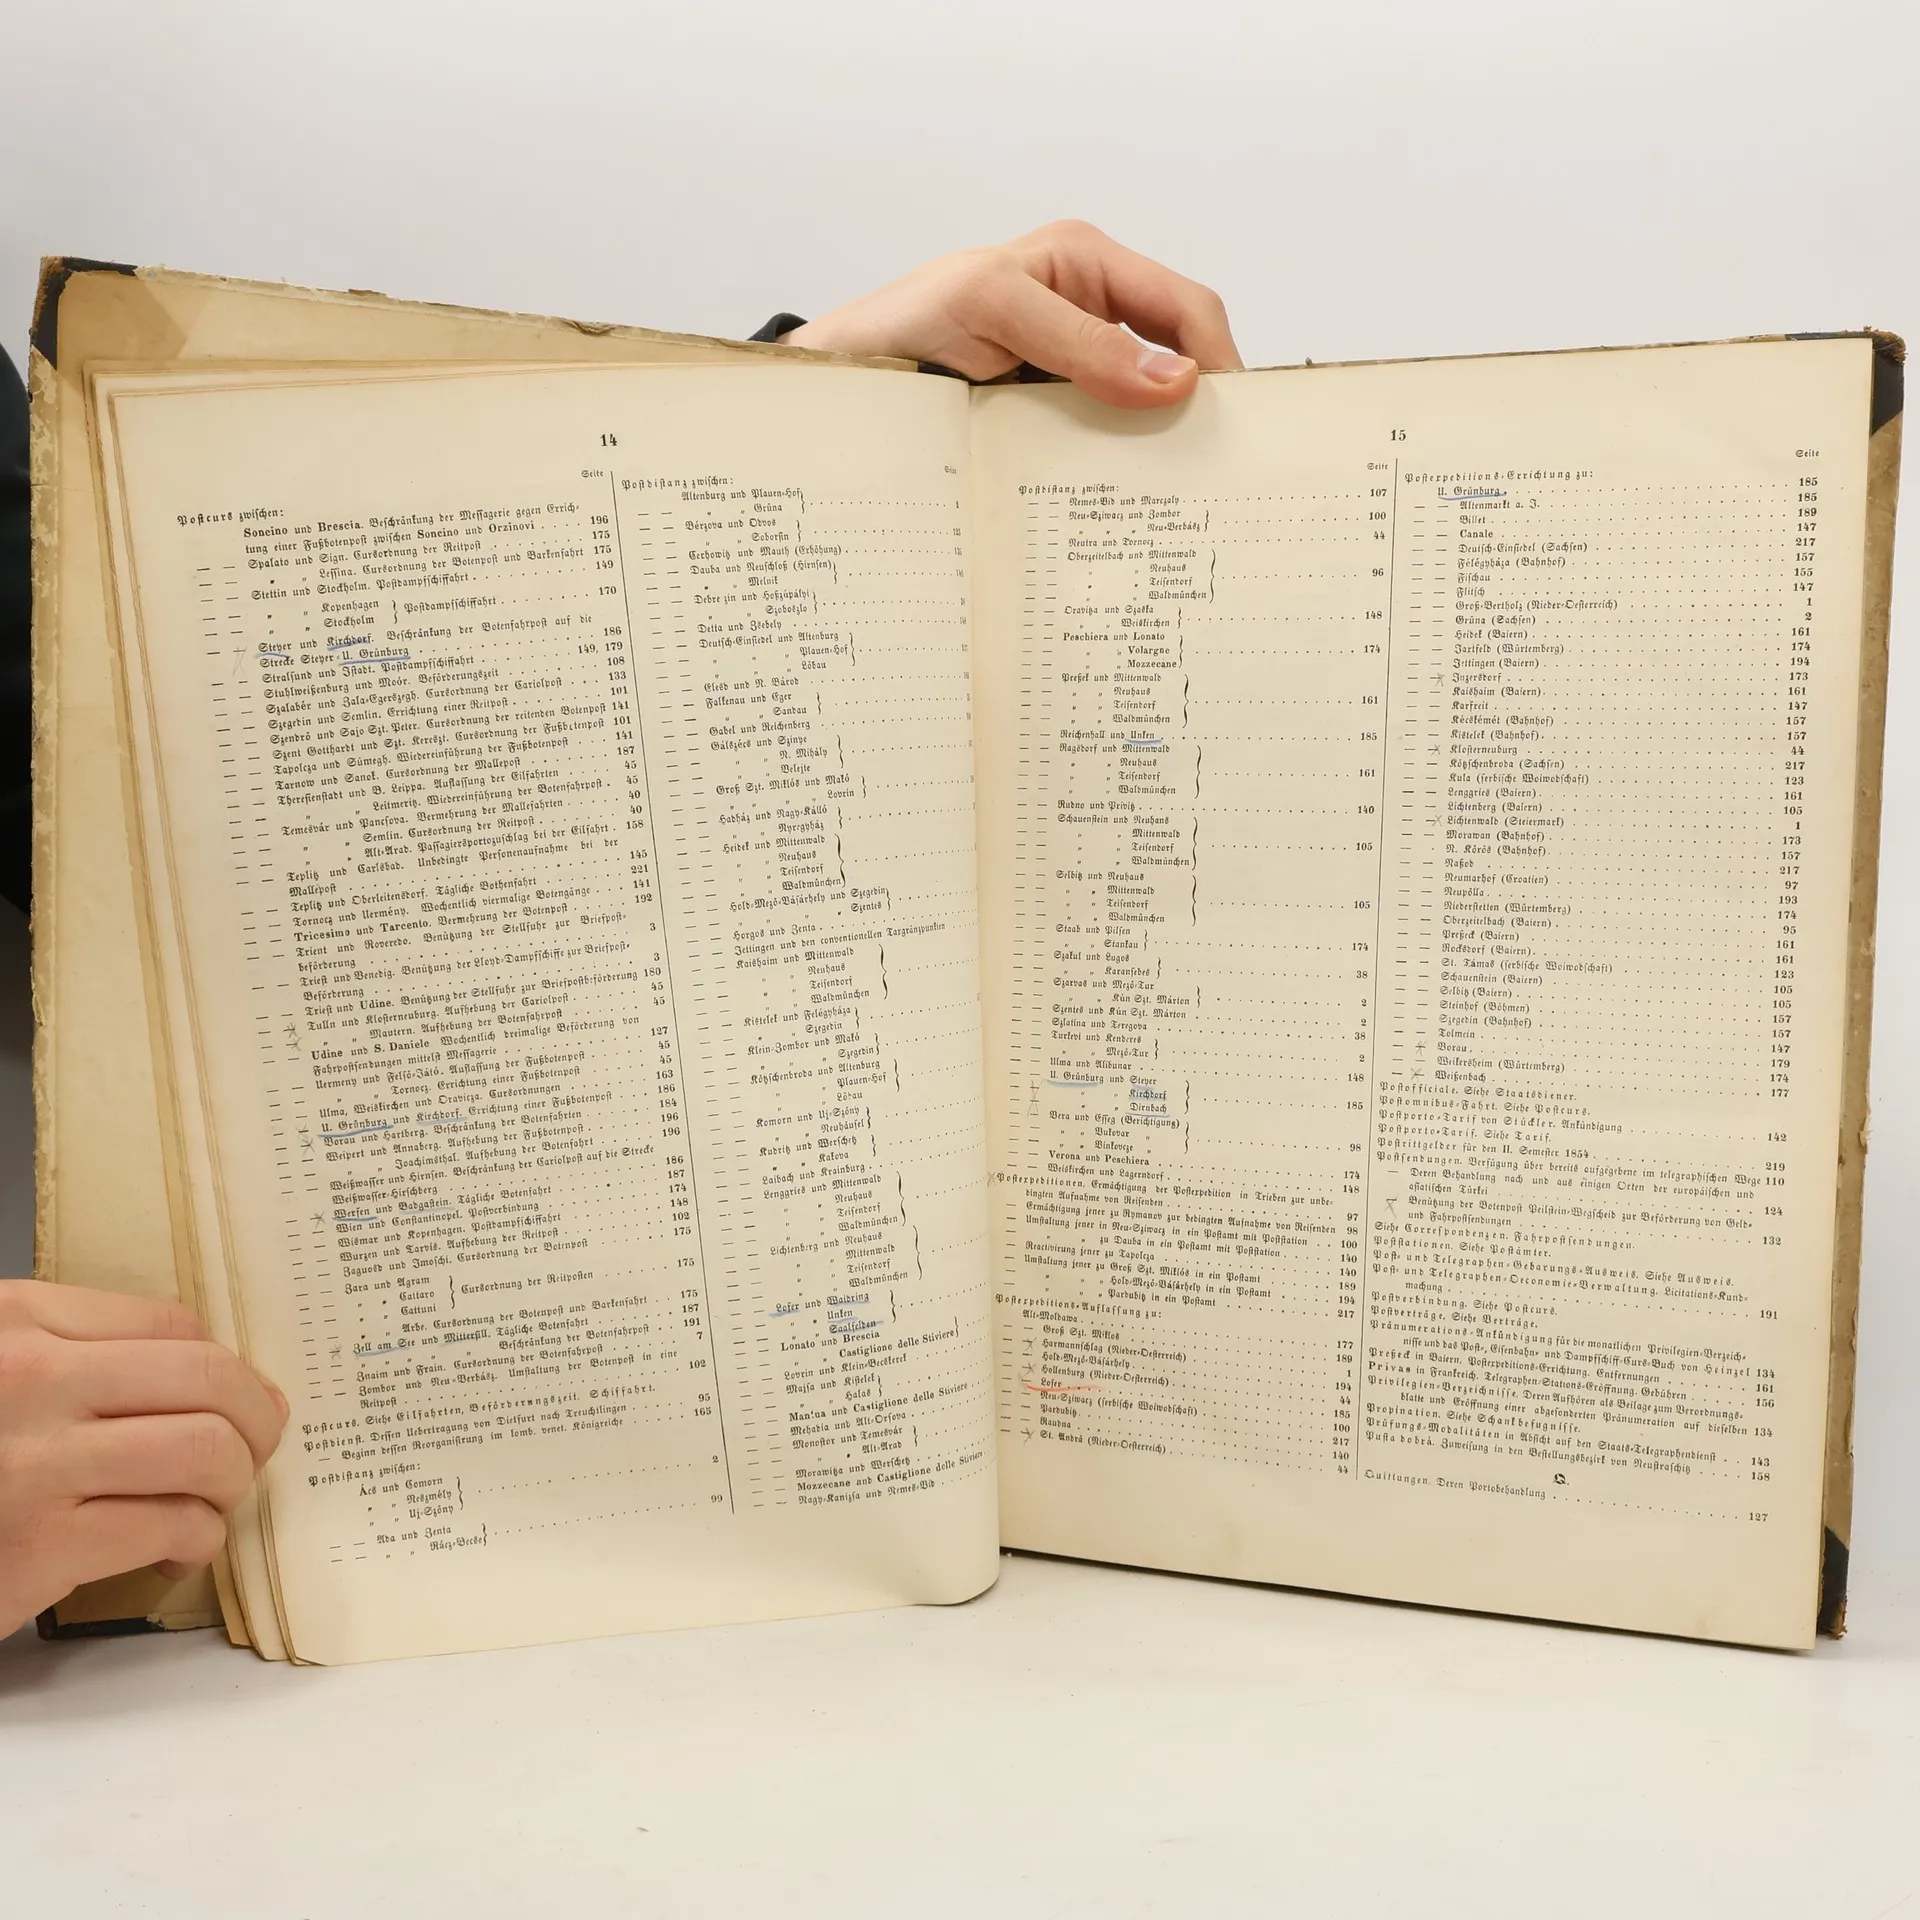 14
Seite
Postcurs zwischen:
Soncino und Brescia. Beschränkung der Messagerie gegen Errich-
tung einer Fußbotenpost zwischen Soncino und Orzinovi . . . . 196
— — Spalato und Sign. Cursordnung der Reitpost . . . . 175
— — „ „ Lessina. Cursordnung der Botenpost und Barkenfahrt 175
— — Stettin und Stockholm. Postdampfschiffahrt . . . . 149
— — „ „ Kopenhagen } Postdampfschiffahrt . . . . 170
— — „ „ Stockholm
— — Steyer und Kirchdorf. Beschränkung der Botenfahrpost auf die
Strecke Steyer-U. Grünburg . . . . 186
— — Stralsund und Istadt. Postdampfschiffahrt . . . . 149, 179
— — Stuhlweißenburg und Moór. Beförderungszeit . . . . 108
— — Szalabér und Zala-Egerszegh. Cursordnung der Cariolpost . . . . 133
— — Szegedin und Semlin. Errichtung einer Reitpost . . . . 101
— — Szendrö und Sajo Szt. Peter. Cursordnung der reitenden Botenpost 141
— — Szent Gotthardt und Szt. Kereszt. Cursordnung der Fußbotenpost 101
— — Tapolcza und Sümegh. Wiedereinführung der Fußbotenpost . . 141
— — Tarnow und Sanok. Cursordnung der Mallepost . . . . 187
— — Theresienstadt und B. Leippa. Auflassung der Eilfahrten . . . . 45
— — „ „ Leitmeritz. Wiedereinführung der Botenfahrpost . 45
— — Temesvár und Pancsova. Vermehrung der Mallefahrten . . . . 40
— — „ „ Semlin. Cursordnung der Reitpost . . . . 40
— — „ „ Alt-Arad. Passagiersportozuschlag bei der Eilfahrt . 158
— — Teplitz und Carlsbad. Unbedingte Personenaufnahme bei der
Mallepost . . . . 145
— — Teplitz und Oberleitensdorf. Tägliche Bothenfahrt . . . . 221
— — Tornocz und Uermény. Wochentlich viermalige Botengänge . . . 141
— — Tricesimo und Tarcento. Vermehrung der Botenpost . . . . 192
— — Trient und Roveredo. Benützung der Stellfuhr zur Briefpost-
beförderung . . . . 3
— — Triest und Venedig. Benützung der Lloyd-Dampfschiffe zur Briefpost-
Beförderung . . . . 3
— — Triest und Udine. Benützung der Stellfuhr zur Briefpostbeförderung 180
— — Tulln und Klosterneuburg. Aufhebung der Cariolpost . . . . 45
— — „ „ Mautern. Aufhebung der Botenfahrpost . . . . 45
— — Udine und S. Daniele Wochentlich dreimalige Beförderung von
Fahrpostsendungen mittelst Messagerie . . . . 127
— — Uermeny und Felsö-Játó. Auflassung der Fußbotenpost . . . . 45
— — „ „ Tornocz. Errichtung einer Fußbotenpost . . . . 45
— — Ulma, Weiskirchen und Oravicza. Cursordnungen . . . . 163
— — U. Grünburg und Kirchdorf. Errichtung einer Fußbotenpost . . . 186
— — Vorau und Hartberg. Beschränkung der Botenfahrten . . . . 184
— — Weipert und Annaberg. Aufhebung der Fußbotenpost . . . . 196
— — „ „ Joachimsthal. Aufhebung der Botenfahrt . . . . 196
— — Weißwasser und Hirnsen. Beschränkung der Cariolpost auf die Strecke
Weißwasser-Hirschberg . . . . 186
— — Werfen und Badgastein. Tägliche Botenfahrt . . . . 187
— — Wien und Constantinopel. Postverbindung . . . . 174
— — Wismar und Kopenhagen. Postdampfschiffahrt . . . . 148
— — Wurzen und Tarvis. Aufhebung der Reitpost . . . . 102
— — Zaguosd und Imoschi. Cursordnung der Botenpost . . . . 175
— — Zara und Agram
— — „ „ Cattaro } Cursordnung der Reitposten . . . . 175
— — „ „ Cattuni
— — „ „ Arbe. Cursordnung der Botenpost und Barkenfahrt . . . . 175
— — Zell am See und Mittersill. Tägliche Botenfahrt . . . . 187
— — „ „ „ „ „ Beschränkung der Botenfahrpost . . . 191
— — Znaim und Frain. Cursordnung der Botenfahrpost . . . . 7
— — Zombor und Neu-Verbász. Umstaltung der Botenpost in eine
Reitpost . . . . 102
Postcurs. Siehe Eilfahrten, Beförderungszeit. Schiffahrt.
Postdienst. Dessen Uebertragung von Dietfurt nach Treuchtlingen . . . . 95
— Beginn dessen Reorganisirung im lomb. venet. Königreiche . . . . 165
Postdistanz zwischen:
Ács und Comorn
„ „ Neszmély } . . . . 2
„ „ Uj-Szöny
— — Ada und Zenta } . . . . 99
— — „ „ Rácz-Becse
Seite
Postdistanz zwischen:
Altenburg und Plauen-Hof
— — „ „ Grüna
— — Bérzova und Odvos
— — „ „ Soborsin
— — Cerhowitz und Mauth (Erhöhung)
— — Dauba und Neuschloß (Hirnsen)
— — „ „ Melnik
— — Debreczin und Hoßzúpályi
— — „ „ Szoboszlo
— — Detta und Zsebely
— — Deutsch-Einsiedel und Altenburg
— — „ „ Plauen-Hof
— — „ „ Löbau
— — Elesd und N. Bárod
— — Falkenau und Eger
— — „ „ Sandau
— — Gabel und Reichenberg
— — Gálszécs und Szinye
— — „ „ N. Mihály
— — „ „ Velejte
— — Groß Szt. Miklós und Makó
— — „ „ „ „ Lovrin
— — Hadház und Nagy-Kálló
— — „ „ Nyregyház
— — Heidek und Mittenwald
— — „ „ Neuhaus
— — „ „ Teisendorf
— — „ „ Waldmünchen
— — Hold-Mezö-Vásárhely und Szegedin
— — „ „ „ „ Szentes
— — Horgos und Zenta
— — Jettingen und den conventionellen Taxgränzpunkten
— — Kaisheim und Mittenwald
— — „ „ Neuhaus
— — „ „ Teisendorf
— — „ „ Waldmünchen
— — Kistelek und Felégyháza
— — „ „ Szegedin
— — Klein-Zombor und Makó
— — „ „ Szegedin
— — Kötzschenbroda und Altenburg
— — „ „ Plauen-Hof
— — „ „ Löbau
— — Komorn und Uj-Szöny
— — „ „ Neuhäusel
— — Kudritz und Werschetz
— — „ „ Kakova
— — Laibach und Krainburg
— — Lenggries und Mittenwald
— — „ „ Neuhaus
— — „ „ Teisendorf
— — „ „ Waldmünchen
— — Lichtenberg und Neuhaus
— — „ „ Mittenwald
— — „ „ Teisendorf
— — „ „ Waldmünchen
— — Lofer und Waidring
— — „ „ Unken
— — „ „ Saalfelden
— — Lonato und Brescia
— — „ „ Castiglione delle Stiviere
— — Lovrin und Klein-Becskerek
— — Majsa und Kistelek
— — „ „ Halas
— — Mantua und Castiglione delle Stiviere
— — Mehadia und Alt-Orsova
— — Monostor und Temesvár
— — „ „ Alt-Arad
— — Morawitza und Werschetz
— — Mozzecane und Castiglione delle Stiviere
— — Nagy-Kanizsa und Nemes-Vid
15
Seite
Postdistanz zwischen:
— — Nemes-Vid und Marczaly . . . . 107
— — Neu-Sziwacz und Zombor } . . . . 100
— — „ „ Neu-Verbász
— — Neutra und Tornocz . . . . 44
— — Oberzeitelbach und Mittenwald
— — „ „ Neuhaus } . . . . 96
— — „ „ Teisendorf
— — „ „ Waldmünchen
— — Oravitza und Szaska } . . . . 148
— — „ „ Weiskirchen
— — Peschiera und Lonato
— — „ „ Volargne } . . . . 174
— — „ „ Mozzecane
— — Preßek und Mittenwald
— — „ „ Neuhaus } . . . . 161
— — „ „ Teisendorf
— — „ „ Waldmünchen
— — Reichenhall und Unken . . . . 185
— — Ragsdorf und Mittenwald
— — „ „ Neuhaus } . . . . 161
— — „ „ Teisendorf
— — „ „ Waldmünchen
— — Rudno und Privitz . . . . 140
— — Schauenstein und Neuhaus
— — „ „ Mittenwald } . . . . 105
— — „ „ Teisendorf
— — „ „ Waldmünchen
— — Selbitz und Neuhaus
— — „ „ Mittenwald } . . . . 105
— — „ „ Teisendorf
— — „ „ Waldmünchen
— — Staab und Pilsen } . . . . 174
— — „ „ Stankau
— — Szakul und Lugos } . . . . 38
— — „ „ Karansebes
— — Szarvas und Mezö-Tur } . . . . 2
— — „ „ Kún Szt. Márton
— — Szentes und Kún Szt. Márton . . . . 2
— — Szlatina und Teregova . . . . 38
— — Turkevi und Kenderes } . . . . 2
— — „ „ Mezö-Tur
— — Ulma und Alibunar . . . . 148
— — U. Grünburg und Steyer
— — „ „ Kirchdorf } . . . . 185
— — „ „ Dirnbach
— — Vera und Esseg (Berichtigung)
— — „ „ Vukovar „ } . . . . 98
— — „ „ Vinkovcze „
— — Verona und Peschiera . . . . 174
— — Weiskirchen und Lagerndorf . . . . 148
Postexpeditionen, Ermächtigung der Postexpedition in Trieben zur unbe-
dingten Aufnahme von Reisenden . . . . 97
— Ermächtigung jener zu Rymanov zur bedingten Aufnahme von Reisenden 98
— Umstaltung jener in Neu-Sziwacz in ein Postamt mit Poststation . . 100
— „ „ zu Dauba in ein Postamt mit Poststation . . . . 140
— Reactivirung jener zu Tapolcza . . . . 140
— Umstaltung jener zu Groß Szt. Miklós in ein Postamt . . . . 189
— „ „ „ Hold-Mezö-Vásárhely in ein Postamt . . . . 194
— „ „ „ Pardubitz in ein Postamt . . . . 217
Postexpeditions-Auflassung zu:
Alt-Moldawa . . . . 177
— — Groß Szt. Miklos . . . . 189
— — Harmannschlag (Nieder-Oesterreich) . . . . 1
— — Hold-Mezö-Vásárhely . . . . 194
— — Hollenburg (Nieder-Oesterreich) . . . . 44
— — Lofer . . . . 185
— — Neu-Sziwacz (serbische Woiwodschaft) . . . . 100
— — Pardubitz . . . . 217
— — Raudna . . . . 140
— — St. Andrä (Nieder-Oesterreich) . . . . 44
Seite
Postexpeditions-Errichtung zu:
U. Grünburg . . . . 185
— — Altenmarkt a. I. . . . . 185
— — Billet . . . . 189
— — Canale . . . . 147
— — Deutsch-Einsiedel (Sachsen) . . . . 217
— — Félégyháza (Bahnhof) . . . . 157
— — Fischau . . . . 155
— — Flitsch . . . . 147
— — Groß-Bertholz (Nieder-Oesterreich) . . . . 1
— — Grüna (Sachsen) . . . . 2
— — Heidek (Baiern) . . . . 161
— — Jartfeld (Würtemberg) . . . . 174
— — Jettingen (Baiern) . . . . 194
— — Inzersdorf . . . . 173
— — Kaisheim (Baiern) . . . . 161
— — Karfreit . . . . 147
— — Kécskémét (Bahnhof) . . . . 157
— — Kistelek (Bahnhof) . . . . 157
— — Klosterneuburg . . . . 44
— — Kötzschenbroda (Sachsen) . . . . 217
— — Kula (serbische Woiwodschaft) . . . . 123
— — Lenggries (Baiern) . . . . 161
— — Lichtenberg (Baiern) . . . . 105
— — Lichtenwald (Steiermark) . . . . 1
— — Morawan (Bahnhof) . . . . 173
— — N. Körös (Bahnhof) . . . . 157
— — Naßod . . . . 217
— — Neumarhof (Croatien) . . . . 97
— — Neupölla . . . . 193
— — Niederstetten (Würtemberg) . . . . 174
— — Oberzeitelbach (Baiern) . . . . 95
— — Preßeck (Baiern) . . . . 161
— — Rocksdorf (Baiern) . . . . 161
— — St. Támas (serbische Woiwodschaft) . . . . 123
— — Schauenstein (Baiern) . . . . 105
— — Selbitz (Baiern) . . . . 105
— — Steinhof (Böhmen) . . . . 157
— — Szegedin (Bahnhof) . . . . 157
— — Tolmein . . . . 147
— — Vorau . . . . 147
— — Weikersheim (Würtemberg) . . . . 174
— — Weißenbach . . . . 177
Postofficiale. Siehe Staatsdiener.
Postomnibus-Fahrt. Siehe Postcurs.
Postporto-Tarif von Stückler. Ankündigung . . . . 142
Postporto-Tarif. Siehe Tarif.
Postrittgelder für den II. Semester 1854 . . . . 219
Postsendungen. Verfügung über bereits aufgegebene im telegraphischen Wege 110
— Deren Behandlung nach und aus einigen Orten der europäischen und
asiatischen Türkei . . . . 124
— Benützung der Botenpost Peilstein-Wegscheid zur Beförderung von Geld-
und Fahrpostsendungen . . . . 132
Siehe Correspondenzen. Fahrpostsendungen.
Poststationen. Siehe Postämter.
Post- und Telegraphen-Gebarungs-Ausweis. Siehe Ausweis.
Post- und Telegraphen-Oeconomie-Verwaltung. Licitations-Kund-
machung . . . . 191
Postverbindung. Siehe Postcurs.
Postverträge. Siehe Verträge.
Pränumerations-Ankündigung für die monatlichen Privilegien-Verzeich-
nisse und das Post-, Eisenbahn- und Dampfschiff-Curs-Buch von Heinzel 134
Preßeck in Baiern. Postexpeditions-Errichtung. Entfernungen . . . . 161
Privas in Frankreich. Telegraphen-Stations-Eröffnung. Gebühren . . . . 156
Privilegien-Verzeichnisse. Deren Aufhören als Beilage zum Verordnungs-
blatte und Eröffnung einer abgesonderten Pränumeration auf dieselben 134
Propination. Siehe Schankbefugnisse.
Prüfungs-Modalitäten in Absicht auf den Staats-Telegraphendienst . . . . 143
Pusta dobrá. Zuweisung in den Bestellungsbezirk von Neustraschitz . . . . 158
Q.
Quittungen. Deren Portobehandlung . . . . 127